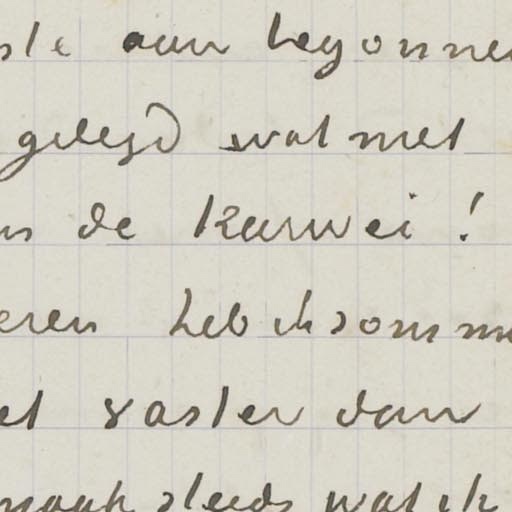 ste aan begonnen
gelegd wat met
de Karwei !
eren heb ik soms
et vaster dan
maak steeds wat ik